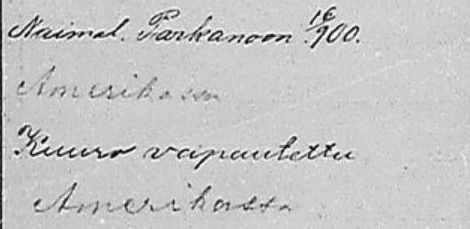 Naimal. Parkanoon 16/9 00.
Amerikassa
Kuuro vapautettu
Amerikassa